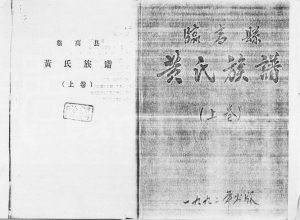 临高县
黄氏族谱
(上卷)
臨高縣
黄氏族譜
(上卷)
一九九二年出版